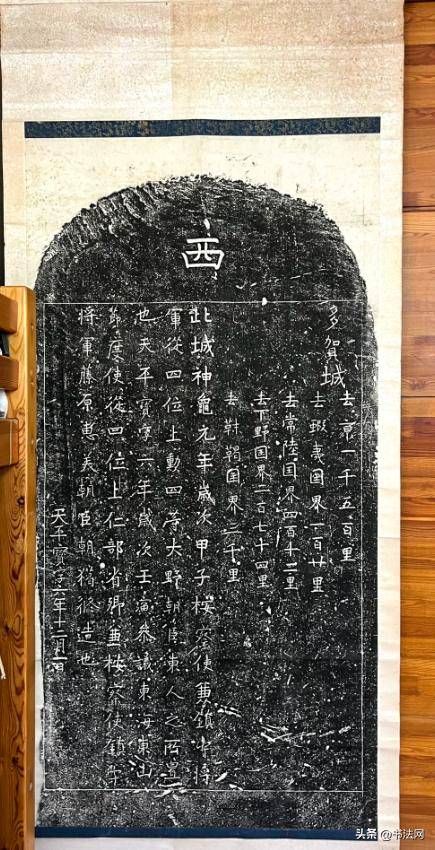 西
多賀城
去京一千五百里
去蝦夷国界一百廿里
去常陸国界四百十二里
去下野国界二百七十四里
去靺鞨国界三千里
此城神龜元年歳次甲子按察使兼鎮守將
軍從四位上勳四等大野朝臣東人之所置
也天平寶字六年歳次壬寅參議東海東山
節度使從四位上仁部省卿兼按察使鎮守
將軍藤原惠美朝臣朝獦修造也
天平寶字六年十二月一日
头条 @书法网